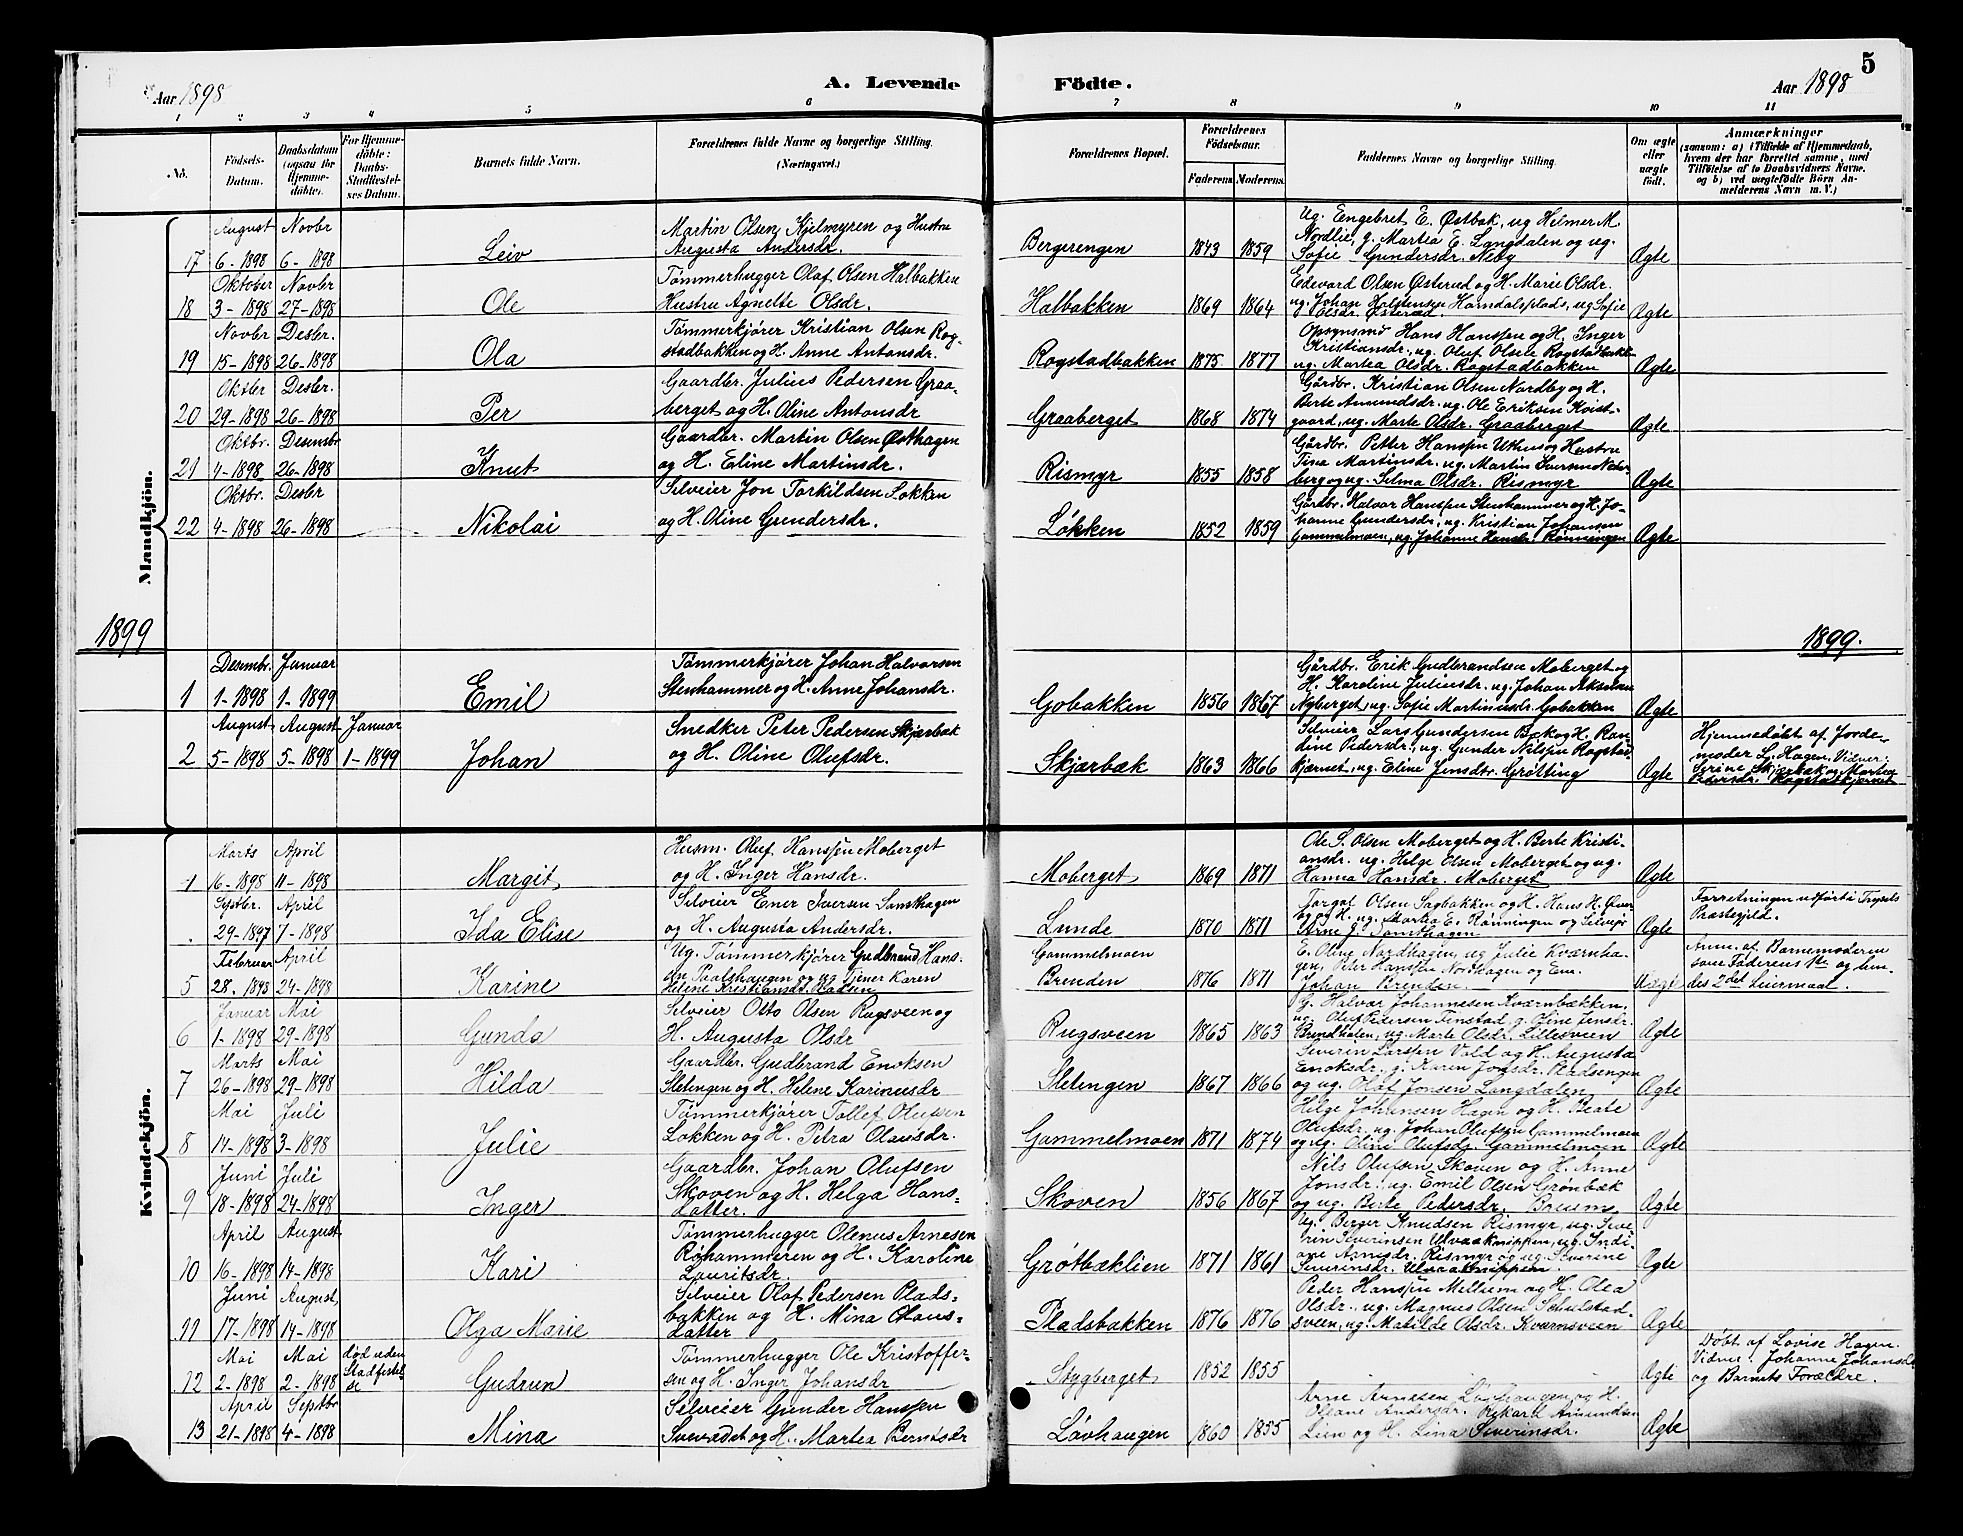 5
Aar 1898 A. Levende Födte. Aar 1898
1 2 3 4 5 6 7 8 9 10 11
No.
Födsels-Datum.
Daabsdatum (ogsaa for Hjemmedöbte).
For Hjemmedöbte: Daabs-Stadfæstelses Datum.
Barnets fulde Navn.
Forældrenes fulde Navne og borgerlige Stilling. (Næringsvei.)
Forældrenes Bopæl.
Forældrenes Födselsaar.
Faderens. Moderens.
Faddernes Navne og borgerlige Stilling.
Om ægte eller uægte født.
Anmærkninger
(saasom: a) i Tilfælde af Hjemmedaab, hvem der har forrettet samme, med Tilföielse af to Daabsvidners Navne, og b) ved uægtefödte Börn Anmelderens Navn m. V.)
Mandkjön.
August Novbr
17 6-1898 6-1898 Leiv
Martin Olsen Kjelmyren og Hustru
Augusta Andersdr.
Bergerengen 1843 1859
Ug. Engebret E. Østbak, ug Helmer M.
Nordlie, g. Martea E. Langdalen og ug.
Sofie Gundersdr. Neby Ægte
Oktober Novbr
18 3-1898 27-1898 Ole
Tømmerhugger Olaf Olsen Halbakken
Hustru Agnethe Olsdr.
Halbakken 1869 1864
Edevard Olsen Østerud og H. Marie Olsdr.
ug. Johan Halstensen Horndalsplads, ug Sofie
Olsdr. Østerud Ægte
Novbr Desbr.
19 15-1898 26-1898 Ola
Tømmerkjører Kristian Olsen Rog-
stadbakken og H. Anne Antonsdr.
Rogstadbakken 1875 1877
Opsynsmd Hans Hanssen og H. Inger
Kristiansdr., ug. Oluf Olsen Rogstadbakk
ug. Martea Olsdr. Rogstadbakken Ægte
Oktbr Desbr.
20 29-1898 26-1898 Per
Gaardbr. Julius Pedersen Graa-
berget og H. Oline Antonsdr
Graaberget 1868 1874
Gårdbr. Kristian Olsen Nordby og H.
Berte Amundsdr. ug. Ole Eriksen Kvist-
gaard, ug. Marte Olsdr. Graaberget Ægte
Oktbr. Desembr
21 4-1898 26-1898 Knut
Gaardbr. Martin Olsen Østhagen
og H. Eline Martinsdr.
Rismyr 1855 1858
Gårdbr. Petter Hanssen Uthus og Hustru
Tina Martinsdr. ug. Martin Iversen Neder
berg og ug. Selma Olsdr. Rismyr Ægte
Oktbr. Desbr
22 4-1898 26-1898 Nikolai
Selveier Jon Torkildsen Løkken
og H. Oline Gundersdr.
Løkken 1852 1859
Gårdbr. Halvor Hanssen Stenhammer og H. Jo-
hanne Gundersdr., ug. Kristian Johansen
Gammelmoen, ug. Johanne Hansdr. Rønningen Ægte
1899 1899.
Desembr. Januar
1 1-1898 1-1899 Emil
Tømmerkjører Johan Halvorsen
Stenhammer og H. Anne Johansdr.
Gobakken 1856 1867
Gårdbr. Erik Gudbrandsen Moberget og
H. Karoline Juliusdr. ug. Johan Akselsen
Nyberget, ug. Sofie Martinusdr. Gobakken Ægte
August August Januar
2 5-1898 5-1898 1-1899 Johan
Snedker Peter Pedersen Skjærbæk
og H. Oline Olufsdr.
Skjærbæk 1863 1866
Selveier Lars Gundersen Bæk og H. Ran
dine Pedersdr., ug. Gunder Nilssen Rogstad
kjærnet, ug. Eline Jensdtr. Grøtting Ægte
Hjemmedøbt af Jorde-
moder L. Hagen. Vidner:
Serine Skjærbæk og Martea
Pedersdr. Rogstadkjærnet
Kvindekjön.
Marts April
1 16-1898 11-1898 Margit
Husm. Oluf Hanssen Moberget
og H. Inger Hansdr.
Moberget 1869 1871
Ole S. Olsen Moberget og H. Berte Kristi-
ansdr. ug. Helge Olsen Moberget og ug.
Hanna Hansdr. Moberget Ægte
Septbr. April
29-1897 7-1898 Ida Elise
Selveier Ener Iversen Sømthagen
og H. Augusta Andersdr.
Lunde 1870 1871
Torgal Olsen Sagbakken og H. Hans H. Øver
og H. ug. Martea E. Rønningen og Selvei
Arne G. Sømthagen Ægte
Forretningen udført i Trysil
Præstegjeld.
Februar April
5 28-1898 24-1898 Karine
Ug. Tømmerkjører Gudbrand Hans-
en Paalshaugen og ug Tjener Karen
Helene Kristiansdr. Pladsen
Gammelmoen
Brenden 1876 1871
E. Oline Nordhagen, ug Julie Kværnha-
gen, Peter Hanssen Nordhagen og Em.
Johan Brenden. Uægte
Anm. af Barnemoderen
som Faderens 1ste og hen-
des 2det Leiermaal.
Januar Mai
6 1-1898 29-1898 Gunda
Selveier Otto Olsen Rugsveen og
H. Augusta Olsdr
Rugsveen 1865 1863
G. Halvor Johannesen Kværnbækken,
ug. Oluf Pedersen Finstad, g. Oline Jensdr.
Brendhølen, ug. Marte Olsdr. Lillesveen Ægte
Marts Mai
7 26-1898 29-1898 Hilda
Gaardbr. Gudbrand Enoksen
Sletengen og H. Helene Karinusdr
Sletengen 1867 1866
Severin Larssen Vold og H. Augusta
Enoksdr., g. Karen Jonsdr. Pladsengen
og ug. Olaf Jonsen Langdalen Ægte
Mai Juli
8 14-1898 3-1898 Julie
Tømmerkjører Tollef Olufsen
Løkken og H. Petra Olausdr.
Gammelmoen 1871 1874
Helge Johansen Hagen og H. Beate
Olufsdr. ug. Johan Olufsen Gammelmoen
og ug. Oline Olufsdr. Gammelmoen Ægte
Juni Juli
9 18-1898 24-1898 Inger
Gaardbr. Johan Olufsen
Skoven og H. Helga Hans-
datter.
Skoven 1856 1867
Nils Olufsen Skoven og H. Anne
Jonsdr., ug. Emil Olsen Grønbæk
og ug. Berte Pedersdr. Ægte
April August
10 16-1898 14-1898 Kari
Tømmerhugger Olenus Arnesen
Røhammeren og H. Karoline
Lauritsdr.
Grøtbæklien 1871 1861
Ug. Berger Knudsen Rismyr, ug. Seve
rin Severinsen Ulvaaknippen, ug. Indi-
ane Arnesdr. Rismyr og ug. Severine
Severinsdr. Ulvaaknippen. Ægte
Juni August
11 17-1898 14-1898 Olga Marie
Selveier Olaf Pedersen Plads-
bakken og H. Mina Olaus-
datter
Pladsbakken 1876 1876
Peder Hanssen Mellem og H. Olea
Olsdr., ug. Magnus Olsen Schulstad-
sveen, ug. Matilde Olsdr. Kværnsveen Ægte
Mai Mai død uden
12 2-1898 2-1898 Stadfestelse Gudrun
Tømmerhugger Ole Kristoffer-
sen og H. Inger Johansdr
Stygberget 1852 1855 Ægte
Døbt af Lovise Hagen.
Vidner: Johanne Johansdr
og Barnets Forældre.
April Septbr
13 21-1898 4-1898 Mina
Selveier Gunder Hanssen
Svevadet og H. Martea Berntsdr
Løvhaugen 1860 1855
Arne Arnesen Løvhaugen og H.
Oleane Andersdr. Rikard Amundsen
Lien og H. Lina Severinsdr. Ægte